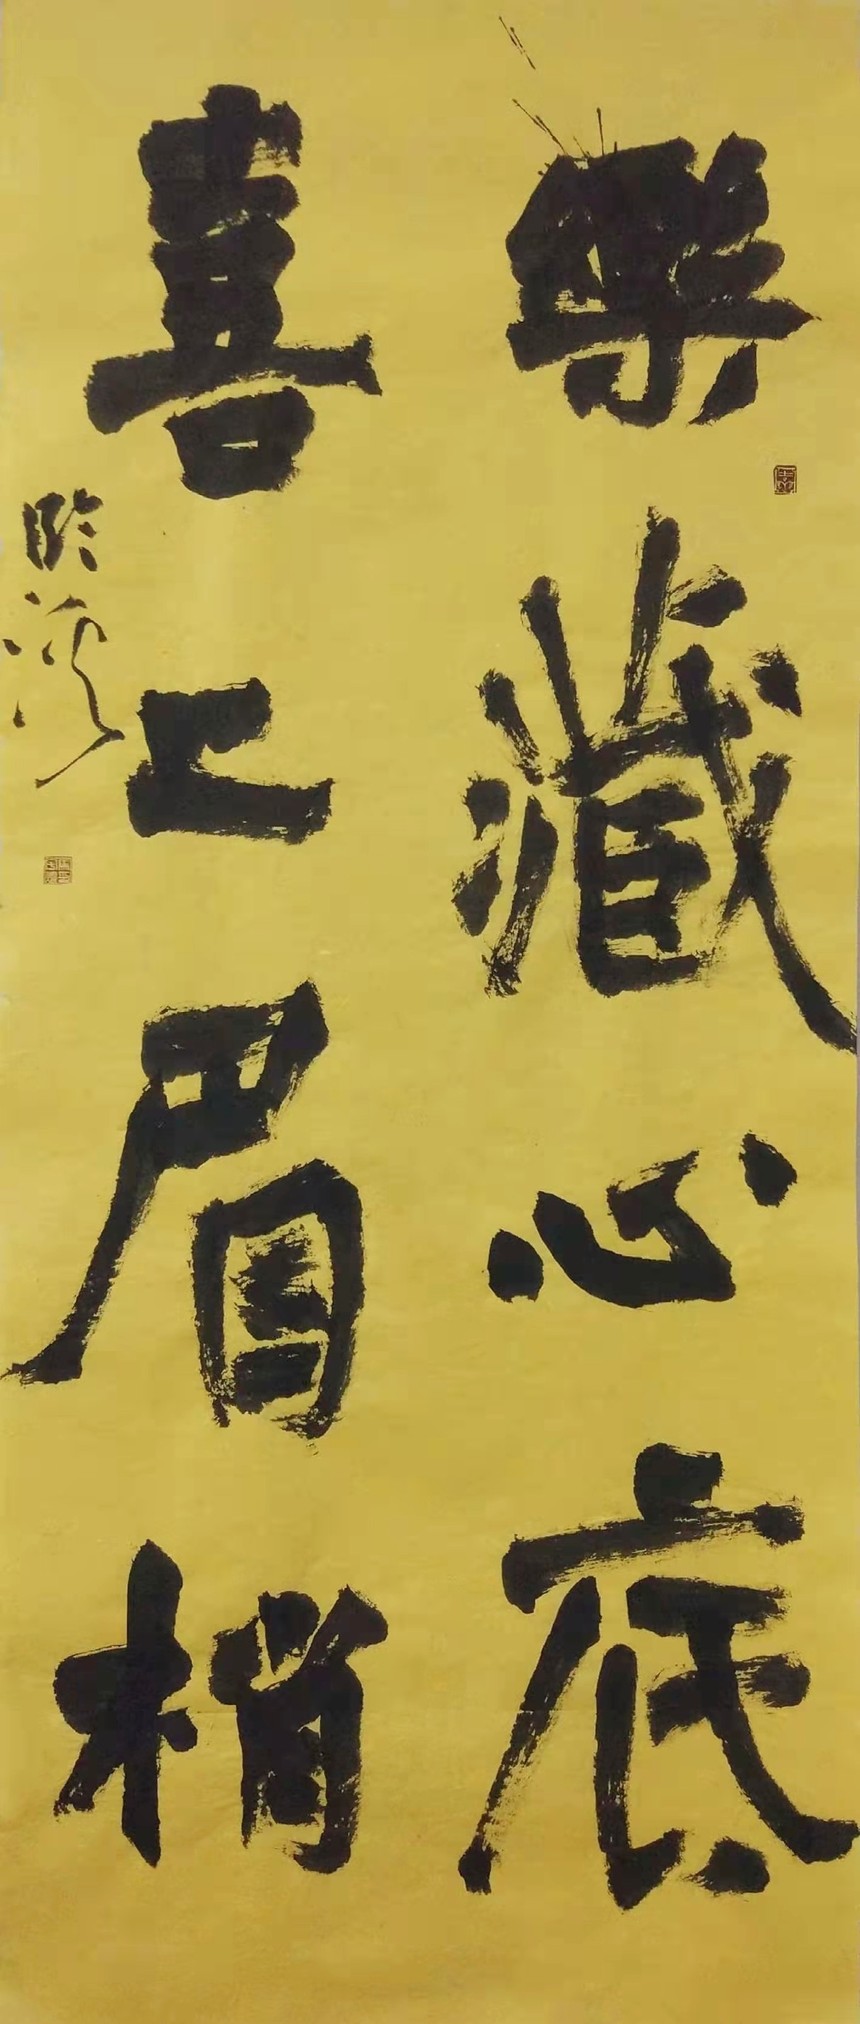 樂藏心底
喜上眉梢